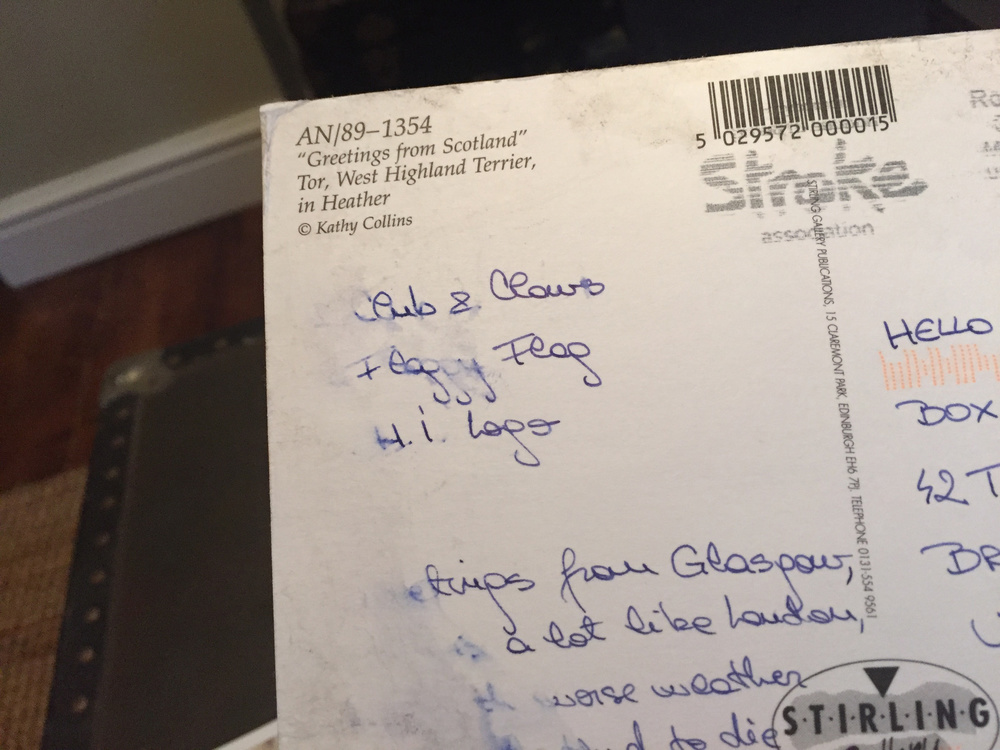 AN/89–1354
"Greetings from Scotland"
Tor, West Highland Terrier,
in Heather
© Kathy Collins
5 029572 000015
Stroke
association
STIRLING GALLERY PUBLICATIONS, 15 CLAREMONT PARK, EDINBURGH EH6 7PJ. TELEPHONE 0131-554 9561
& Claws
Flaggy Flag
H.i. Logs
from Glasgow,
a lot like London,
worse weather
to die
HELLO
BOX
42 T
BR
S·T·I·R·L·I·N·G